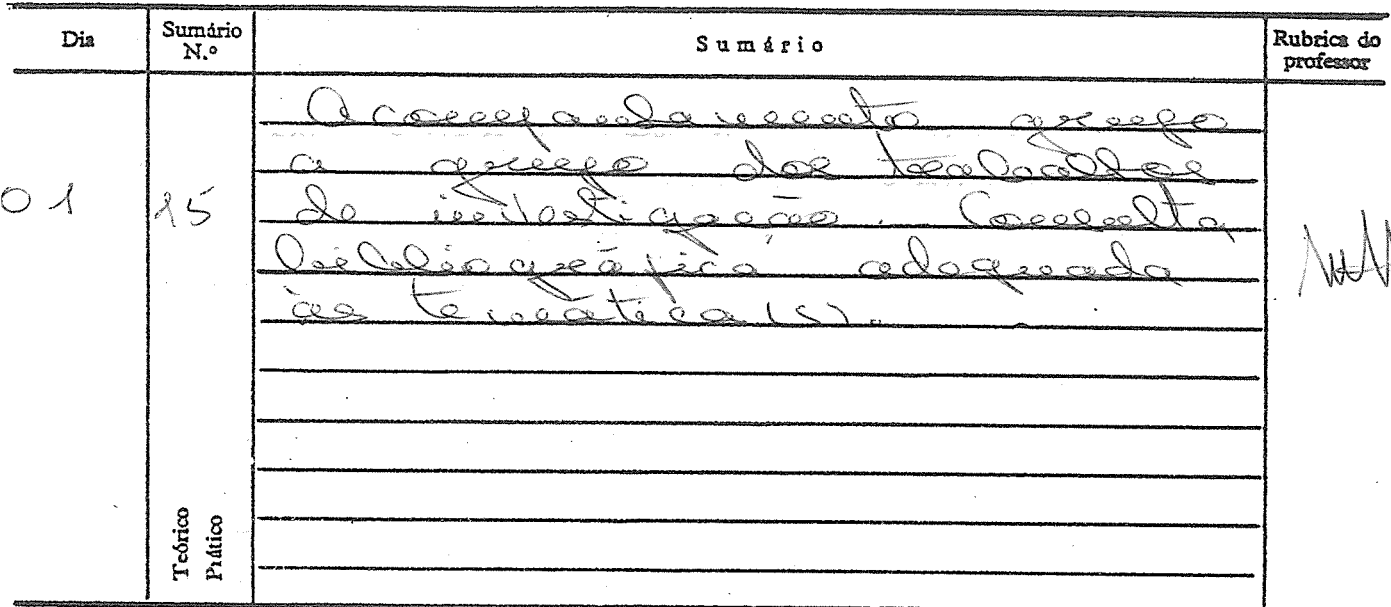 Dia Sumário N.º Sumário Rubrica do professor
01 15 Acompanhamento grupo
a grupo dos trabalhos
de investigação. Consulta
bibliográfica adequada
às temática(s).
Teórico
Prático